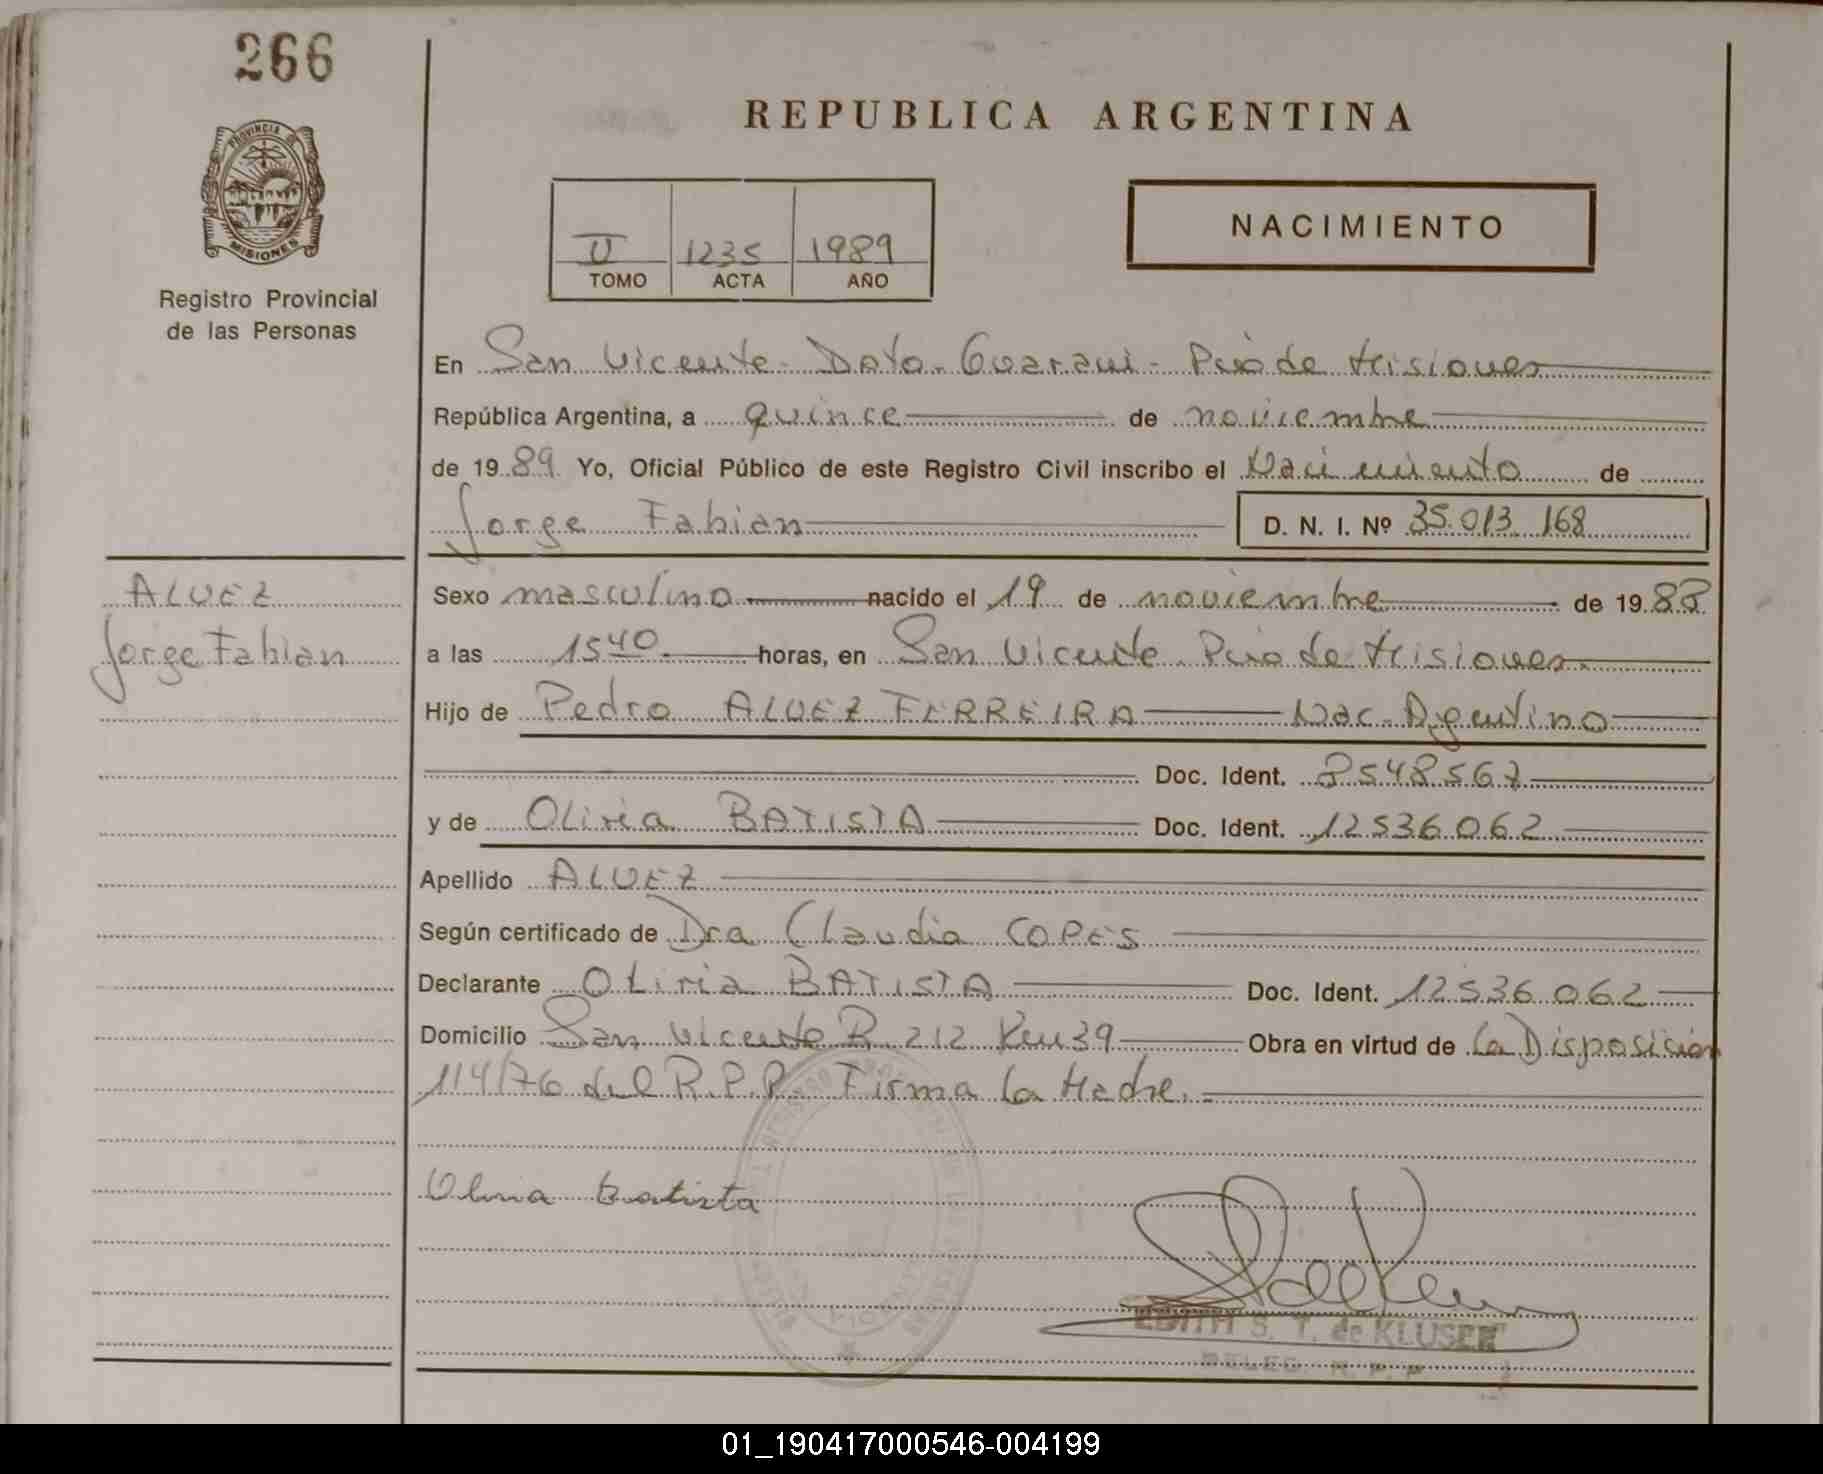 266
REPUBLICA ARGENTINA
PROVINCIA DE
MISIONES
Registro Provincial
de las Personas
NACIMIENTO
U 1235 1989
TOMO ACTA AÑO
En San Vicente - Dpto. Guarani - Pcia de Misiones
República Argentina, a quince de noviembre
de 1989 Yo, Oficial Público de este Registro Civil inscribo el Nacimiento de
Jorge Fabian D. N. I. Nº 35.013 168
ALVEZ
Jorge Fabian
Sexo masculino nacido el 19 de noviembre de 1988
a las 1540 horas, en San Vicente Pcia de Misiones
Hijo de Pedro ALVEZ FERREIRA Nac. Argentino
Doc. Ident. 8548567
y de Oliria BATISTA Doc. Ident. 12536062
Apellido ALVEZ
Según certificado de Dra Claudia COPES
Declarante Oliria BATISTA Doc. Ident. 12536062
Domicilio San Vicente R. 212 Km 39 Obra en virtud de la Disposición
114/76 del R.P.P. Firma la Madre.
Oliria Batista
EDITH S. T. de KLUSER
DELEG. R. P. P
01_190417000546-004199